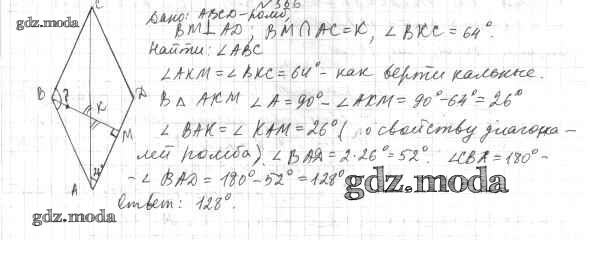 № 306
C
gdz.moda
Дано: ABCD - ромб,
BM⊥AD; BM∩AC=K, ∠BKC=64°.
Найти: ∠ABC
∠AKM=∠BKC=64° - как вертикальные.
B ? K D
В △ AKM ∠A=90°-∠AKM=90°-64°=26°
M
∠BAK=∠KAM=26° (по свойству диагона-
лей ромба), ∠BAD=2·26°=52°. ∠CBA=180°-
A
-∠BAD=180°-52°=128°
gdz.moda
gdz.moda
Ответ: 128°.